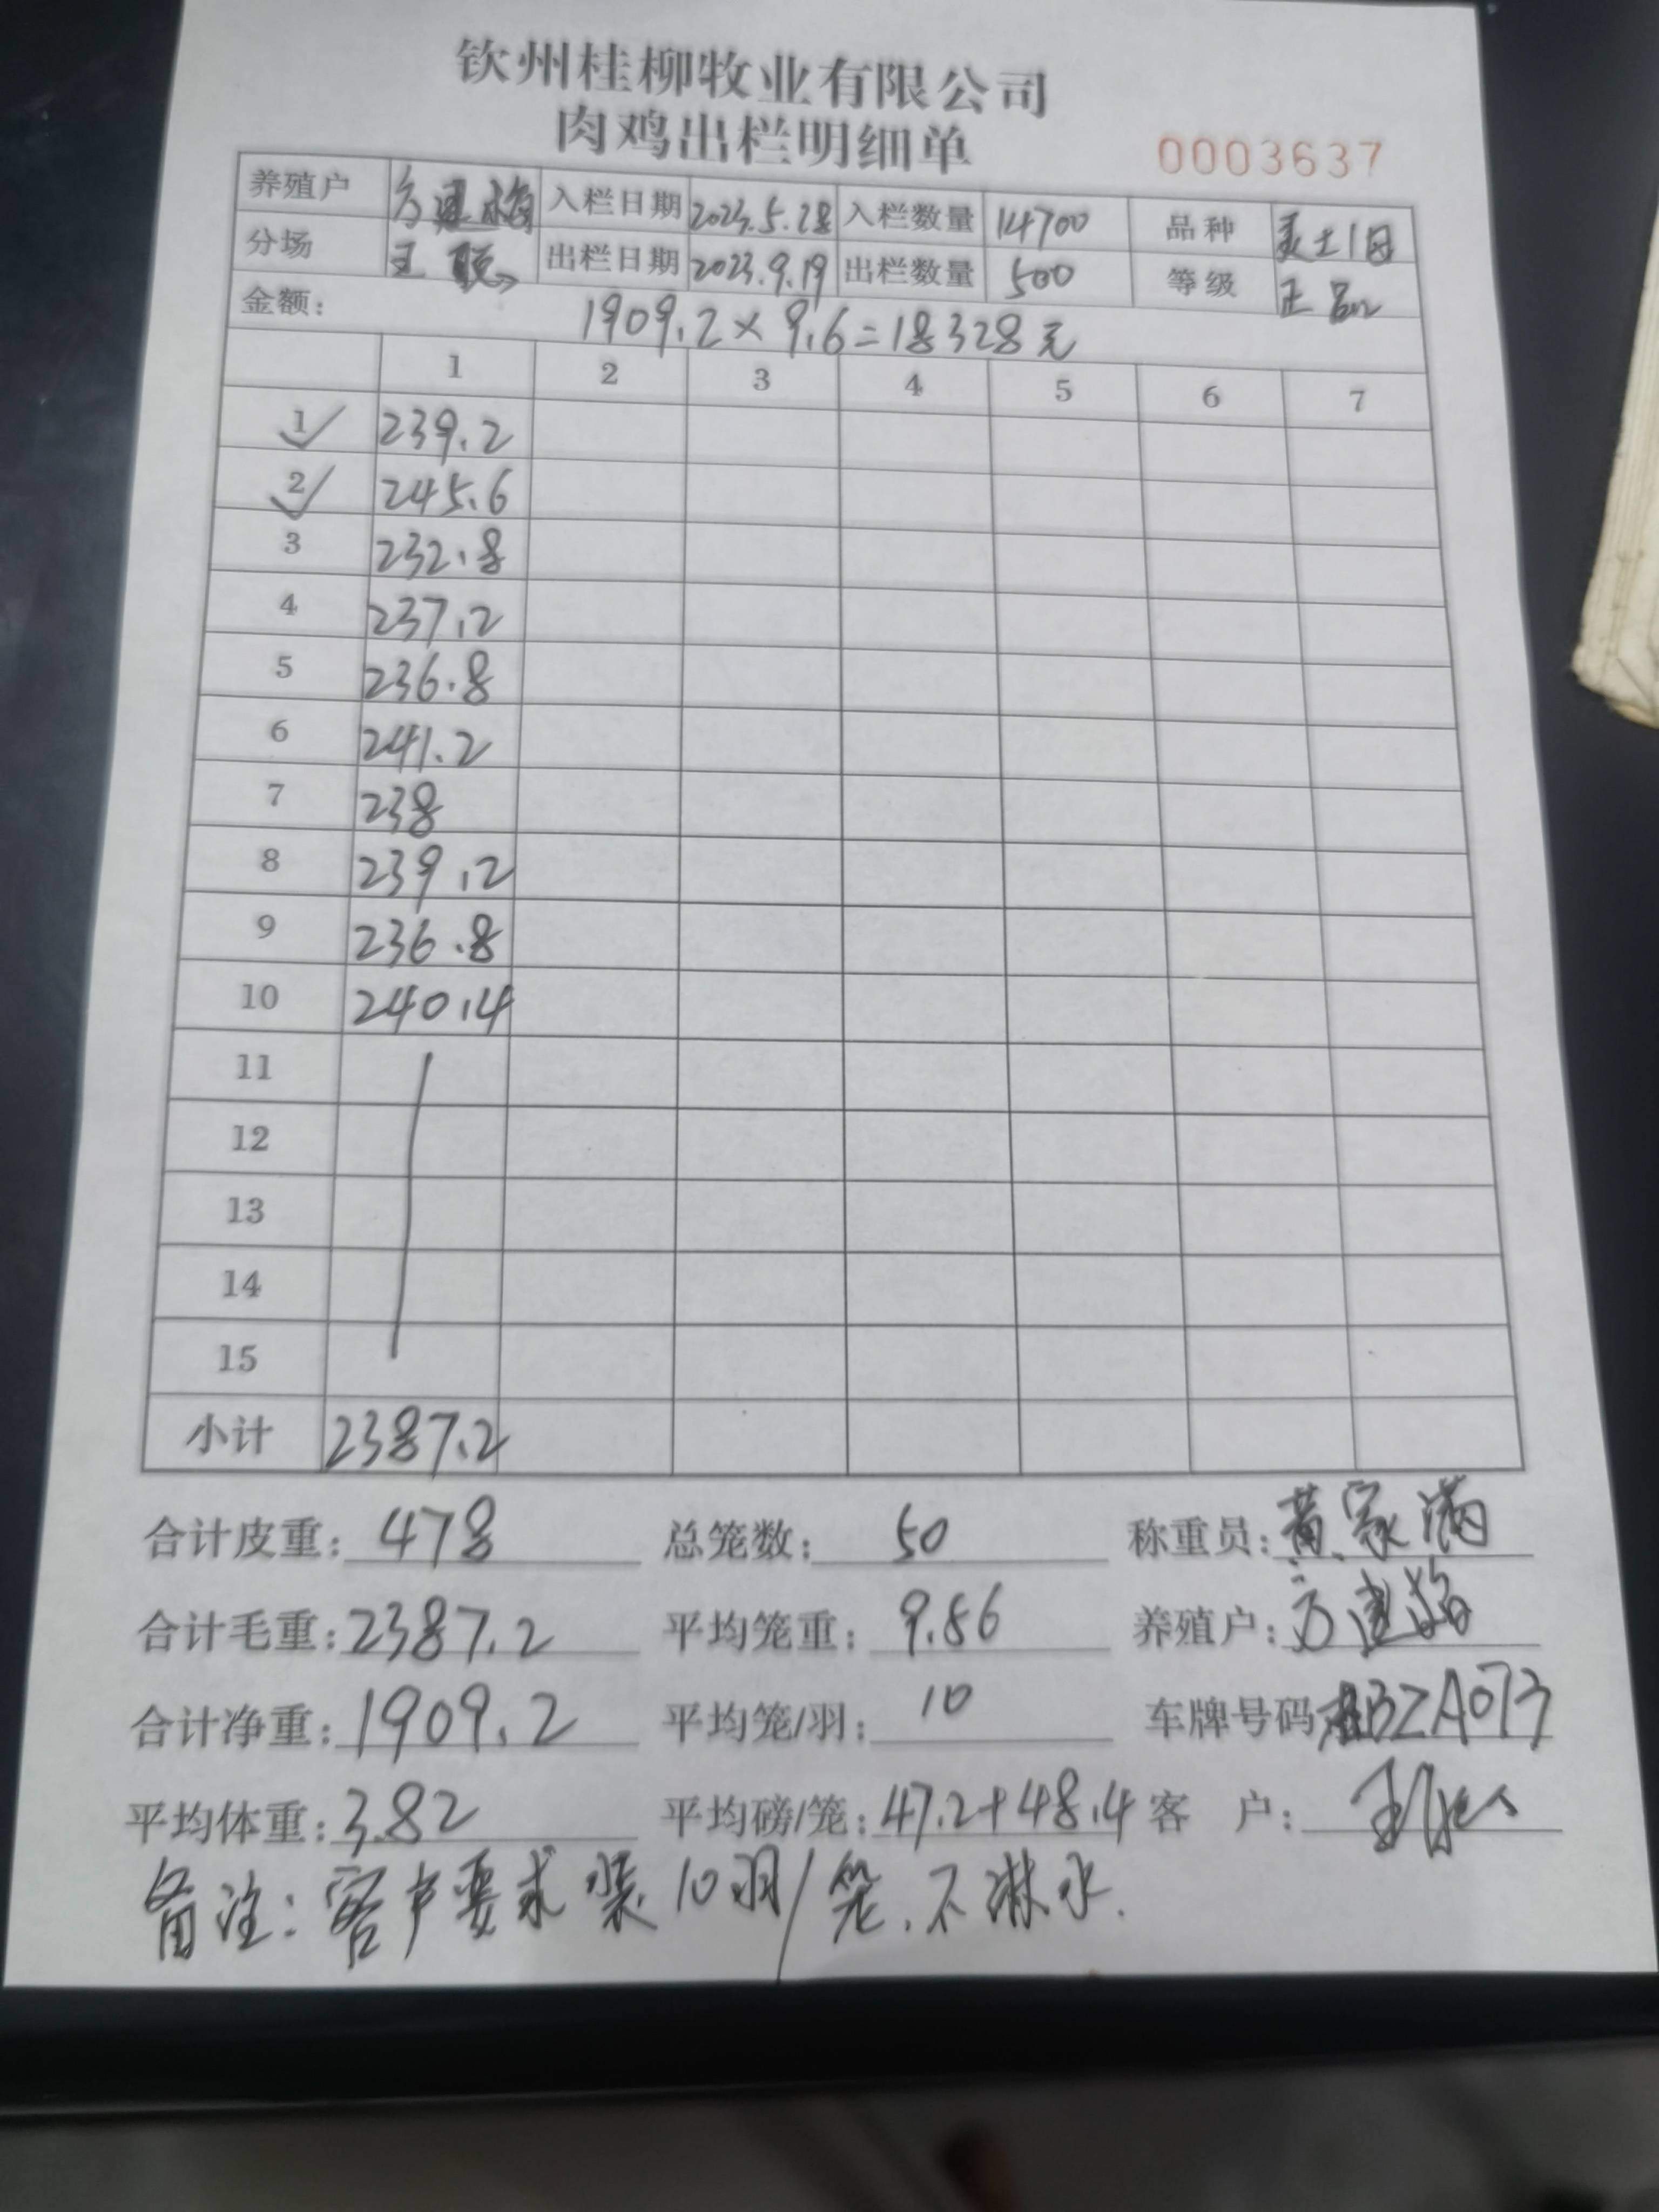 钦州桂柳牧业有限公司
肉鸡出栏明细单
0003637
养殖户 方建梅 入栏日期 2023.5.28 入栏数量 14700 品种 美土1母
分场 王聪 出栏日期 2023.9.19 出栏数量 500 等级 正品
金额: 1909.2×9.6=18328元
1 2 3 4 5 6 7
1 239.2
2 245.6
3 232.8
4 237.2
5 236.8
6 241.2
7 238
8 239.2
9 236.8
10 240.4
11
12
13
14
15
小计 2387.2
合计皮重: 478 总笼数: 50 称重员: 黄家满
合计毛重: 2387.2 平均笼重: 9.56 养殖户: 方建梅
合计净重: 1909.2 平均笼/羽: 10 车牌号码 BZA073
平均体重: 3.82 平均磅/笼: 47.2+48.4 客 户:
备注: 客户要求装10羽/笼.不淋水.